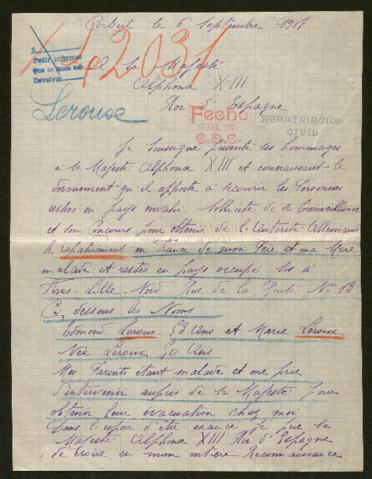 Corbeil le 6 Septembre 1917
442031
A
Pedir informe
que se haga del
Devolver
A Sa Majesté
Alphonse XIII
Roi d'Espagne
Leroux
Fecho
C.S.C.
REPATRIACION
CIVIL
Je soussigné présente ses hommages
à Sa Majesté Alphonse XIII et connaissant le
devouement qu'il apporte à secourir les Personnes
restées en pays envahi. Sollicite de sa Bienveillance
et son Concours pour obtenir de l'autorité Allemande
le rapatriement en France de mon Père et ma Mère
malade et restés en pays occupé sis à
Fives-Lille-Nord Rue de la No 13
Ci dessous les Noms
Edmond Leroux 58 Ans et Marie Leroux
Née Leroux 50 Ans
Mes Parents étant malade et me prie
d'intervenir auprès de Sa Majesté pour
obtenir leur évacuation chez moi
Dans l'espoir d'être exaucé je prie Sa
Majesté Alphonse XIII Roi d'Espagne
de croire en mon entière Reconnaissance